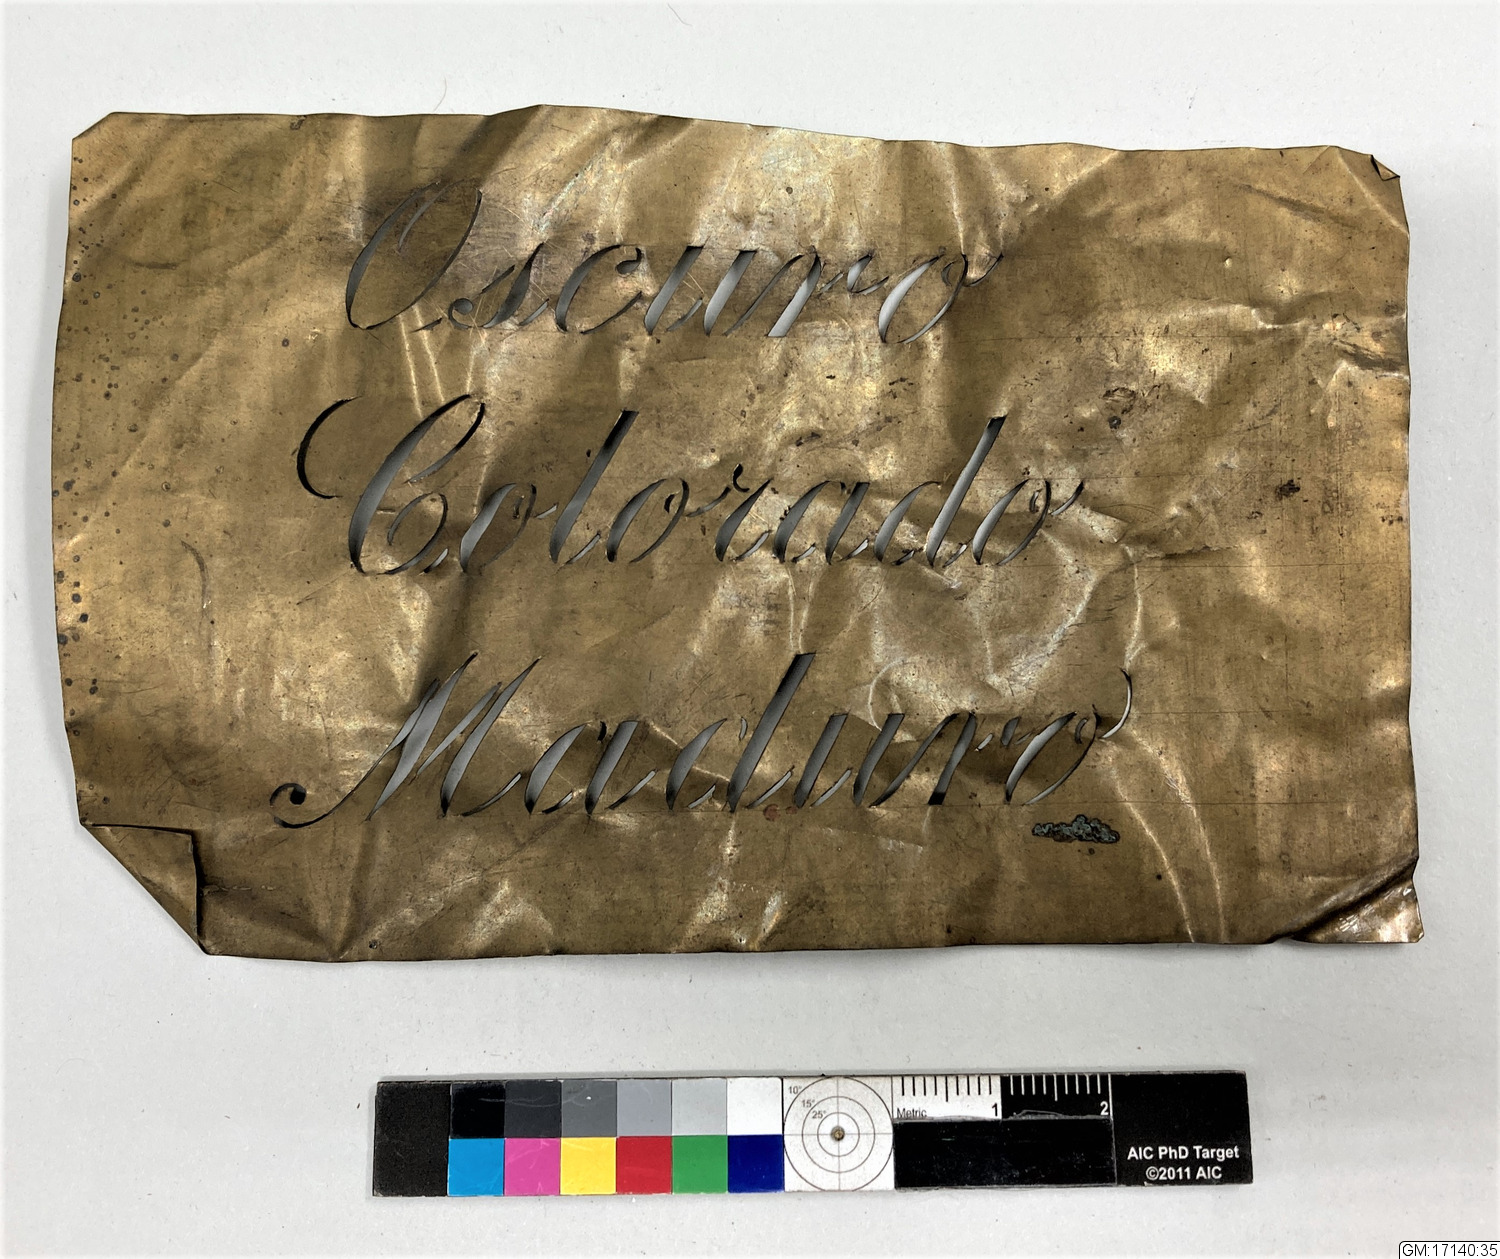 Oscuro
Colorado
Maduro
10°
15°
25°
Metric 1 2
AIC PhD Target
©2011 AIC
GM:17140:35